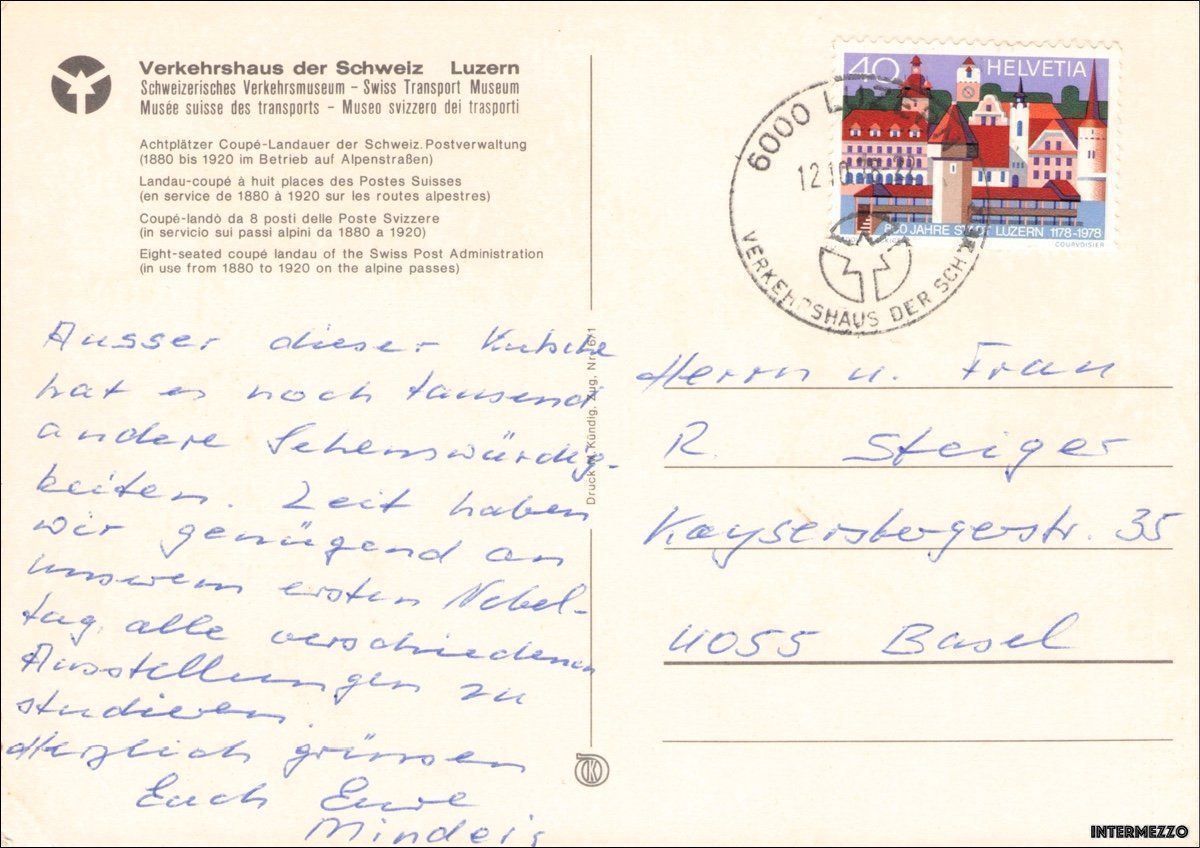 Verkehrshaus der Schweiz Luzern
Schweizerisches Verkehrsmuseum – Swiss Transport Museum
Musée suisse des transports – Museo svizzero dei trasporti
Achtplätzer Coupé-Landauer der Schweiz. Postverwaltung
(1880 bis 1920 im Betrieb auf Alpenstraßen)
Landau-coupé à huit places des Postes Suisses
(en service de 1880 à 1920 sur les routes alpestres)
Coupé-landò da 8 posti delle Poste Svizzere
(in servicio sui passi alpini da 1880 a 1920)
Eight-seated coupé landau of the Swiss Post Administration
(in use from 1880 to 1920 on the alpine passes)
Ausser dieser Kutsche
hat es noch tausend
andere Sehenswürdig-
keiten. Zeit haben
wir genügend an
unserem ersten Nebel-
tag, alle verschiedenen
Ausstellungen zu
studieren.
Herzlich grüssen
Euch Eure
Druck M. Kündig, Zug, Nr. 671
40 HELVETIA
800 JAHRE STADT LUZERN 1178-1978
COURVOISIER
6000
12.10.
VERKEHRSHAUS DER
Herrn u. Frau
R. Steiger
Kaysersbergerstr. 35
4055 Basel
INTERMEZZO